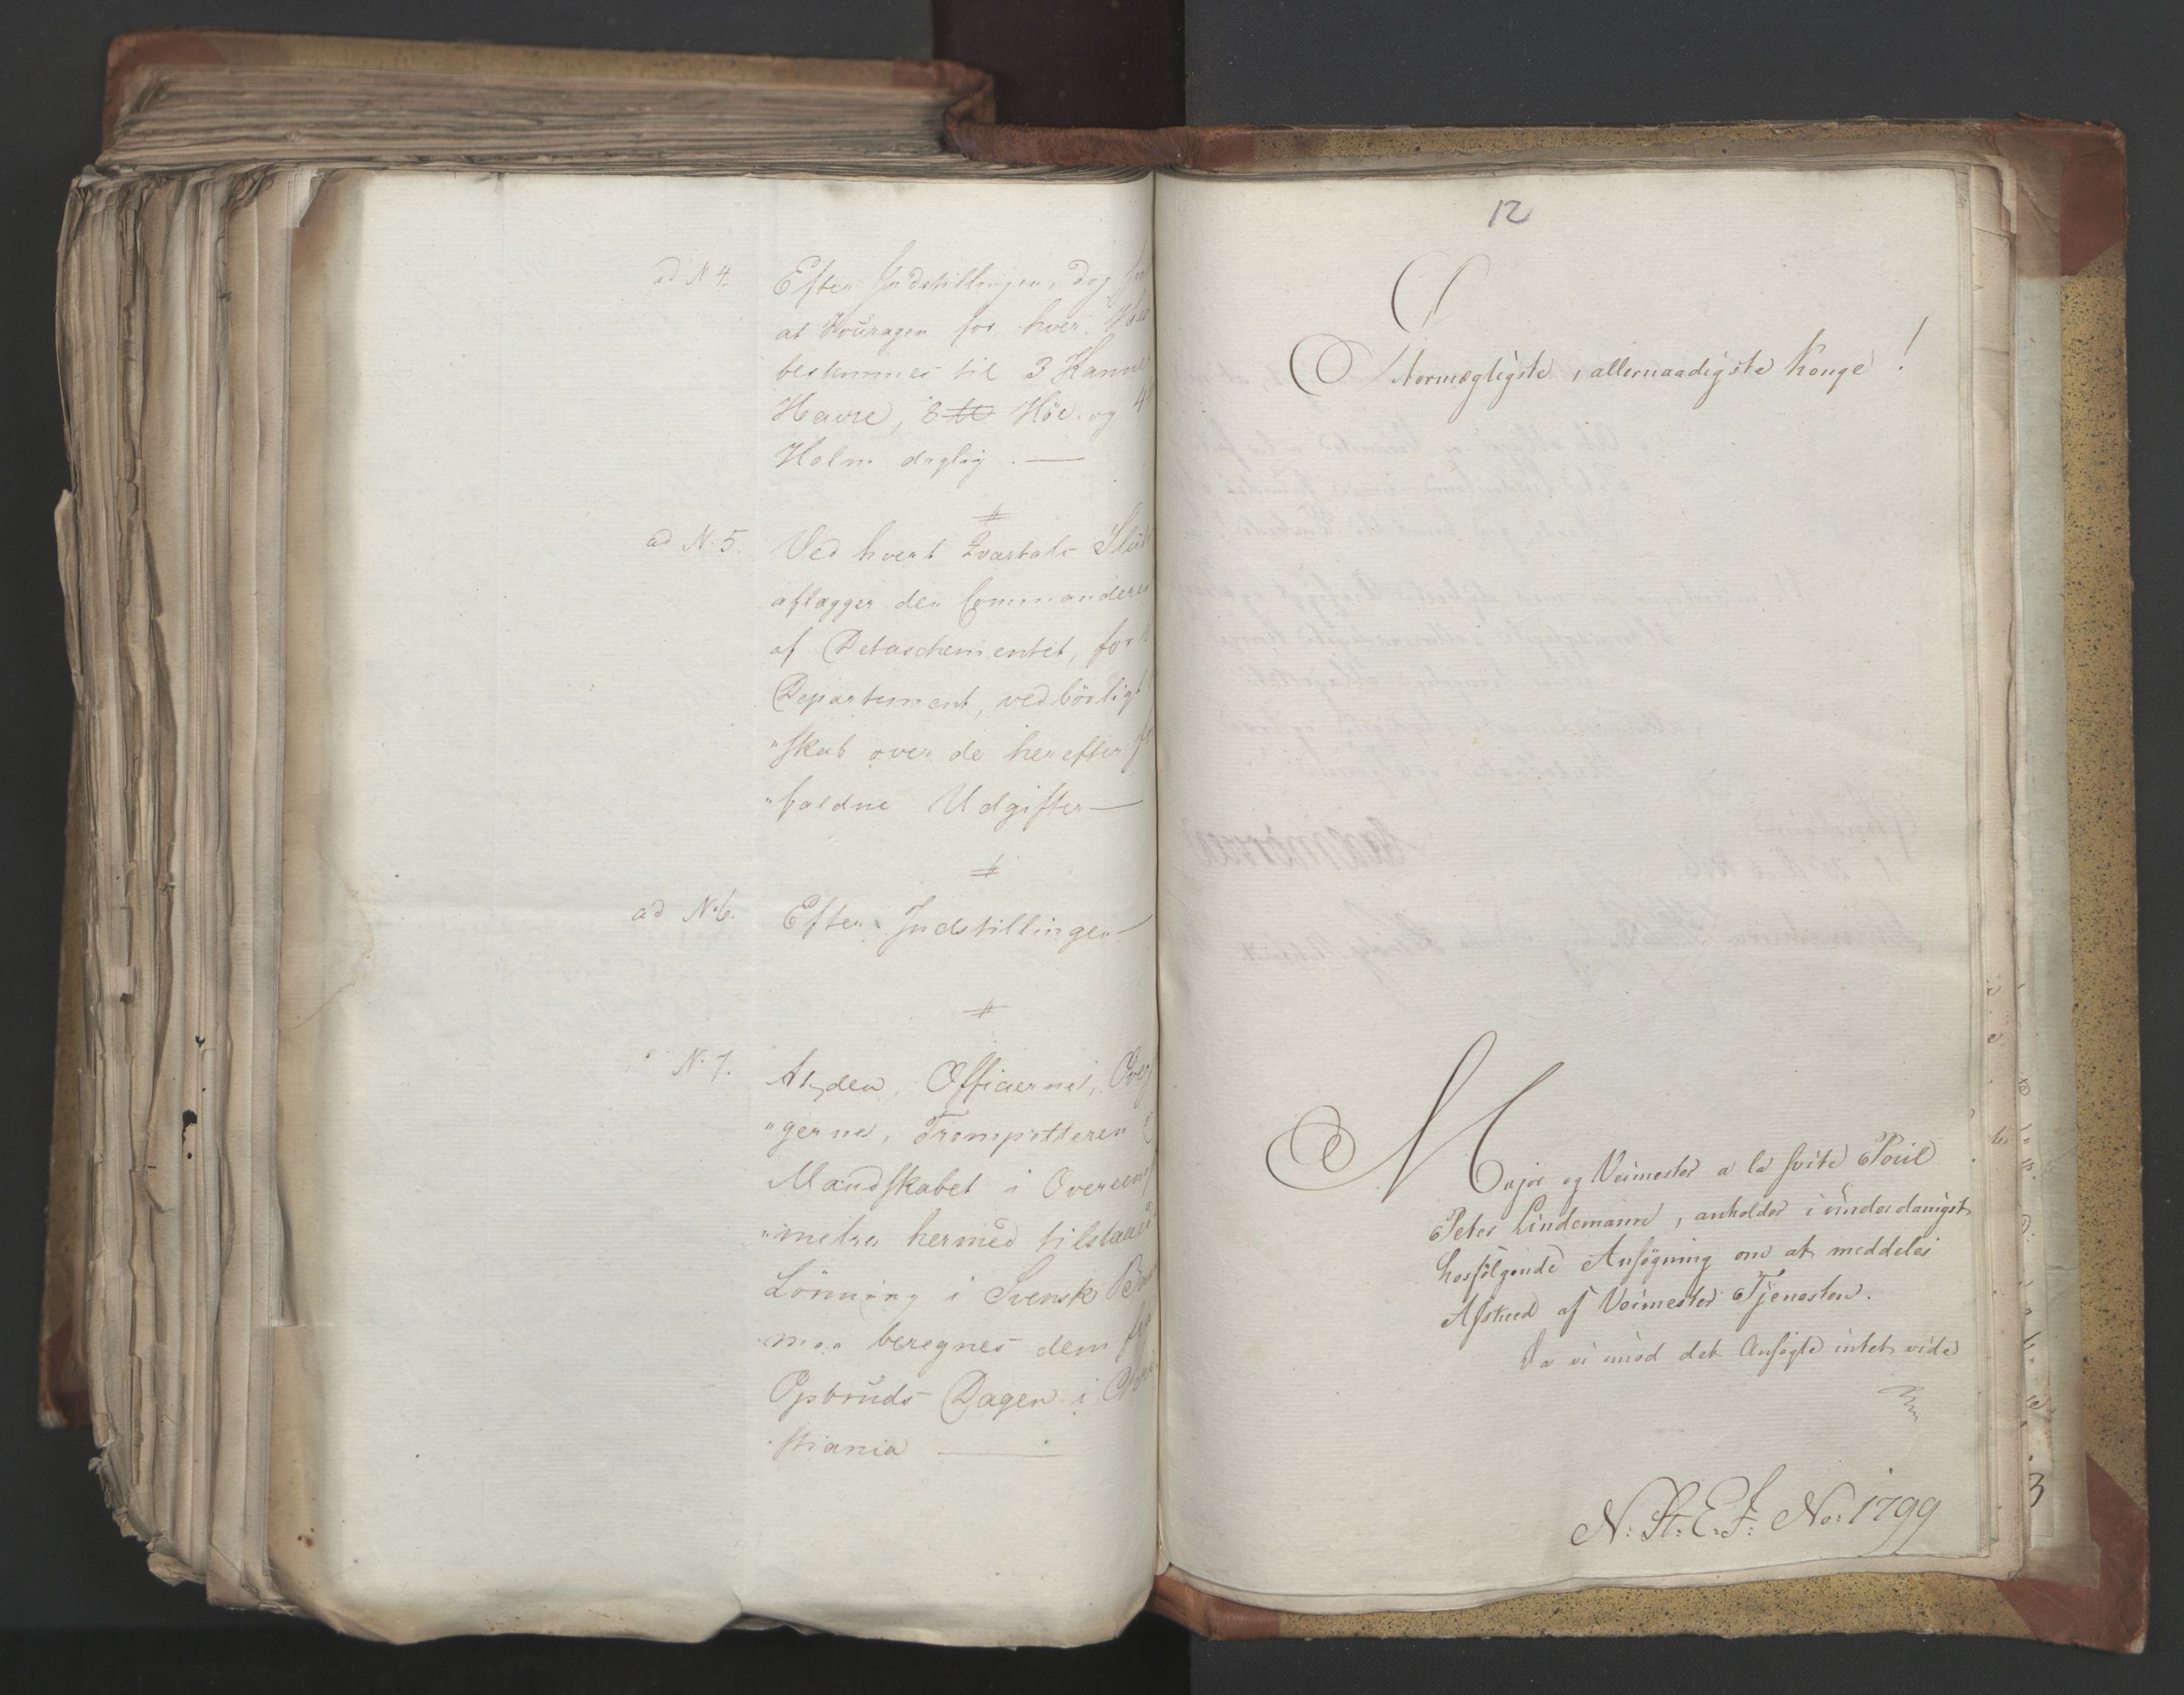 ad N 4. Efter Indstillingen, dog
at Fouragen for hver
bestemmes til 3 Kanne
Havre, 8 ℔ Höe og 4
Halm daglig. —
ad N. 5. Ved hvert Qvartals Slut
aflægger den Commandere
af Detaschementet, for
Departement, vedbörligt
"skab over de herefter
"faldne Udgifter —
ad N. 6. Efter Indstillingen —
N. 7. At den, Officierne,
"gerne, Trompetteren
Mandskabet i Overeens
"melse hermed tilstaaed
Lönning i Svensk
maa beregnes dem fra
Opbruds Dagen i Chri
stiania —
12
Stormægtigste, allernaadigste Konge!
Major og Veimester a la suite Pouil
Peter Lindemann, anholder i underdanigst
hosfölgende Ansögning om at meddeles
Afskeed af Veimester Tjenesten.
Da vi imod det Ansögte intet vide
N: St: E. F: No: 1799
3